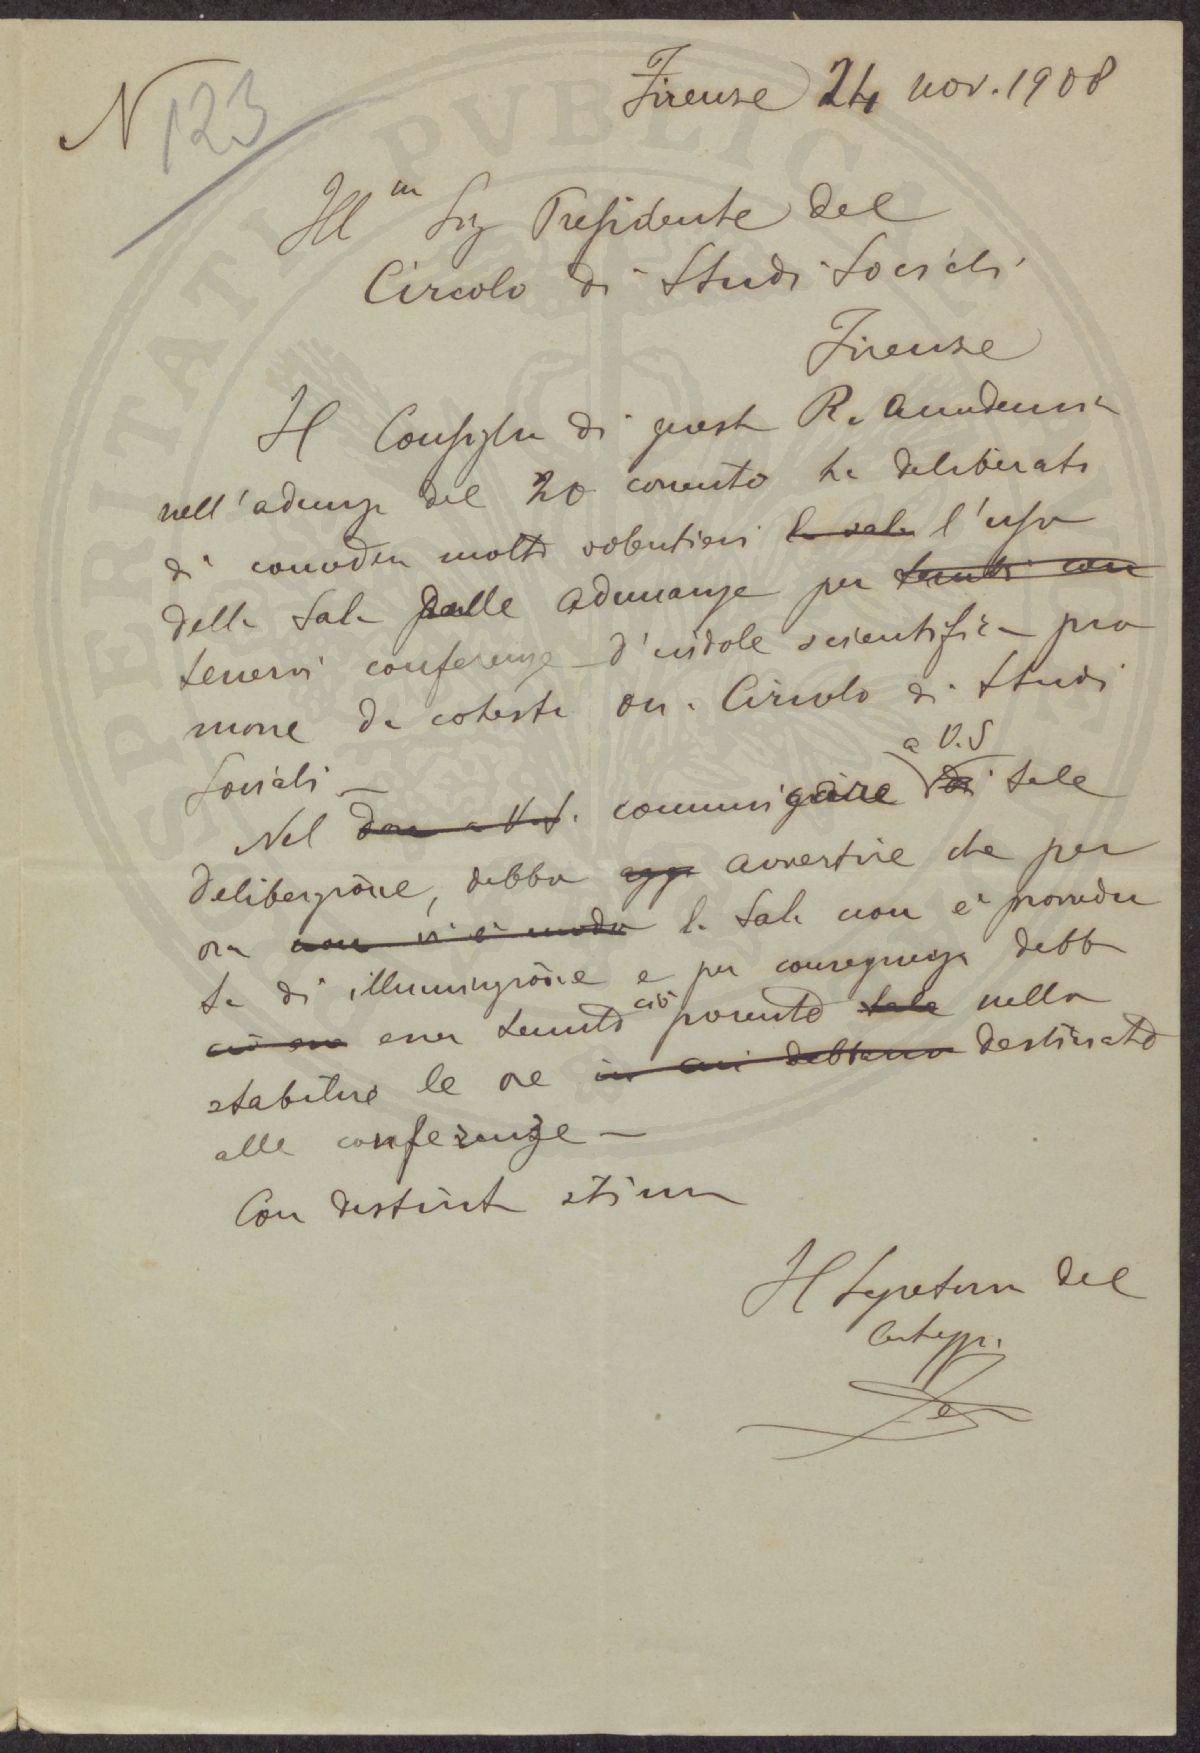 N 123
Firenze 24 nov. 1908
Ill m Sig Presidente del
Circolo di Studi Sociali
Firenze
Il Consiglio di questa R. Accademia
nell'adunza del 20 corrente ha deliberato
di conceder molto volentieri la sala l'uso
della Sala delle Adunanze per tenervi con
tenervi conferenze d'indole scientifica pro
mosse da cotesto on. Circolo di Studi
Sociali —
a V.S
Nel dare a V.S. communicare di tale
deliberazione, debbo agg avvertire che per
ora non vi è modo la Sala non è provvedu
ta di illuminazione e per conseguenza debba
ciò ess esser tenuto ciò presente tale nello
stabilire le ore in cui debbano destinate
alle conferenze —
Con distinta stima
Il Segretario del